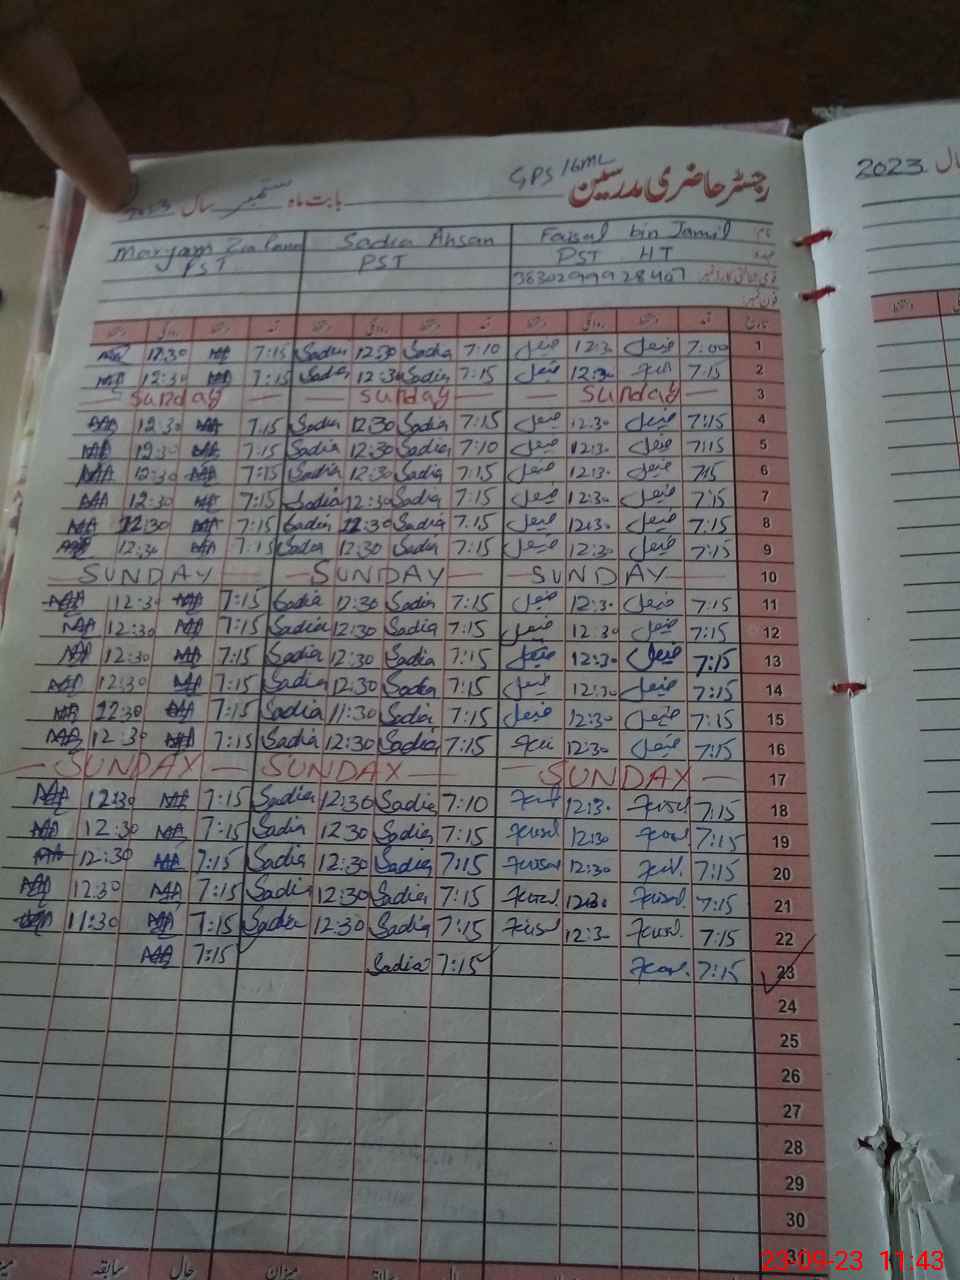 GPS 16ML
رجسٹر حاضری مدرسین
بابت ماہ ستمبر سال 2023
2023 سال
نام Faisal bin Jamil Sadia Ahsan Maryam
عہدہ PST HT PST PST
قومی شناختی کارڈ نمبر
فون نمبر
تاریخ آمد دستخط روانگی دستخط آمد دستخط روانگی دستخط آمد دستخط روانگی دستخط
1 7:00 فیصل 12:30 فیصل 7:10 Sadia 12:30 Sadia 7:15 MA 12:30 MA
2 7:15 12:30 فیصل 7:15 Sadia 12:30 Sadia 7:15 MA 12:30 MA
3 Sunday Sunday Sunday
4 7:15 فیصل 12:30 فیصل 7:15 Sadia 12:30 Sadia 7:15 MA 12:30 MA
5 7:15 فیصل 12:30 فیصل 7:10 Sadia 12:30 Sadia 7:15 MA 12:30 MA
6 7:15 فیصل 12:30 فیصل 7:15 Sadia 12:30 Sadia 7:15 MA 12:30 MA
7 7:15 فیصل 12:30 فیصل 7:15 Sadia 12:30 Sadia 7:15 MA 12:30 MA
8 7:15 فیصل 12:30 فیصل 7:15 Sadia 12:30 Sadia 7:15 MA 12:30 MA
9 7:15 فیصل 12:30 فیصل 7:15 Sadia 12:30 Sadia 7:15 MA 12:30 MA
10 SUNDAY SUNDAY SUNDAY
11 7:15 فیصل 12:30 فیصل 7:15 Sadia 12:30 Sadia 7:15 MA 12:30 MA
12 7:15 فیصل 12:30 فیصل 7:15 Sadia 12:30 Sadia 7:15 MA 12:30 MA
13 7:15 فیصل 12:30 فیصل 7:15 Sadia 12:30 Sadia 7:15 MA 12:30 MA
14 7:15 فیصل 12:30 فیصل 7:15 Sadia 12:30 Sadia 7:15 MA 12:30 MA
15 7:15 فیصل 12:30 فیصل 7:15 Sadia 11:30 Sadia 7:15 MA 12:30 MA
16 7:15 فیصل 12:30 7:15 Sadia 12:30 Sadia 7:15 MA 12:30 MA
17 SUNDAY SUNDAY SUNDAY
18 7:15 12:30 7:10 Sadia 12:30 Sadia 7:15 MA 12:30 MA
19 7:15 12:30 7:15 Sadia 12:30 Sadia 7:15 MA 12:30 MA
20 7:15 12:30 7:15 Sadia 12:30 Sadia 7:15 MA 12:30 MA
21 7:15 12:30 7:15 Sadia 12:30 Sadia 7:15 MA 12:30 MA
22 7:15 12:30 7:15 Sadia 12:30 Sadia 7:15 MA 11:30 MA
23 7:15 7:15 Sadia 7:15 MA
24
25
26
27
28
29
30
31
میزان حال سابقہ
23-09-23 11:43